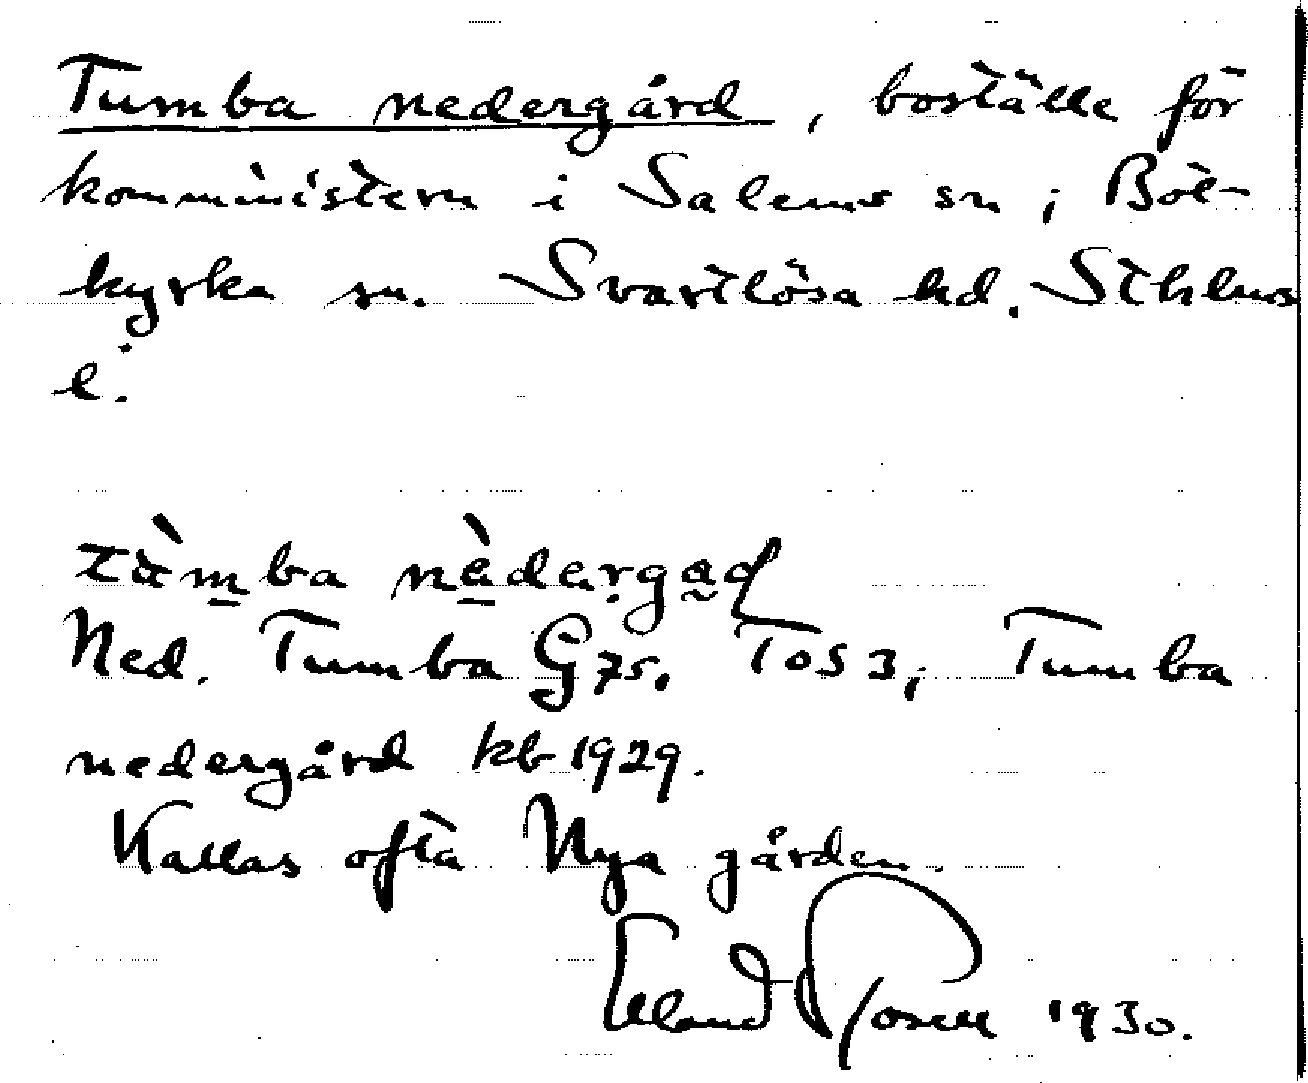 Tumba nedergård, boställe för
komministern i Salems sn, Bot-
kyrka sn. Svartlösa hd. Sthlms
l.
tùmba nèdergad
Ned. Tumba G 75. TOS 3, Tumba
nedergård kb 1929.
Kallas ofta Nya gården.
Erland Rosell 1930.